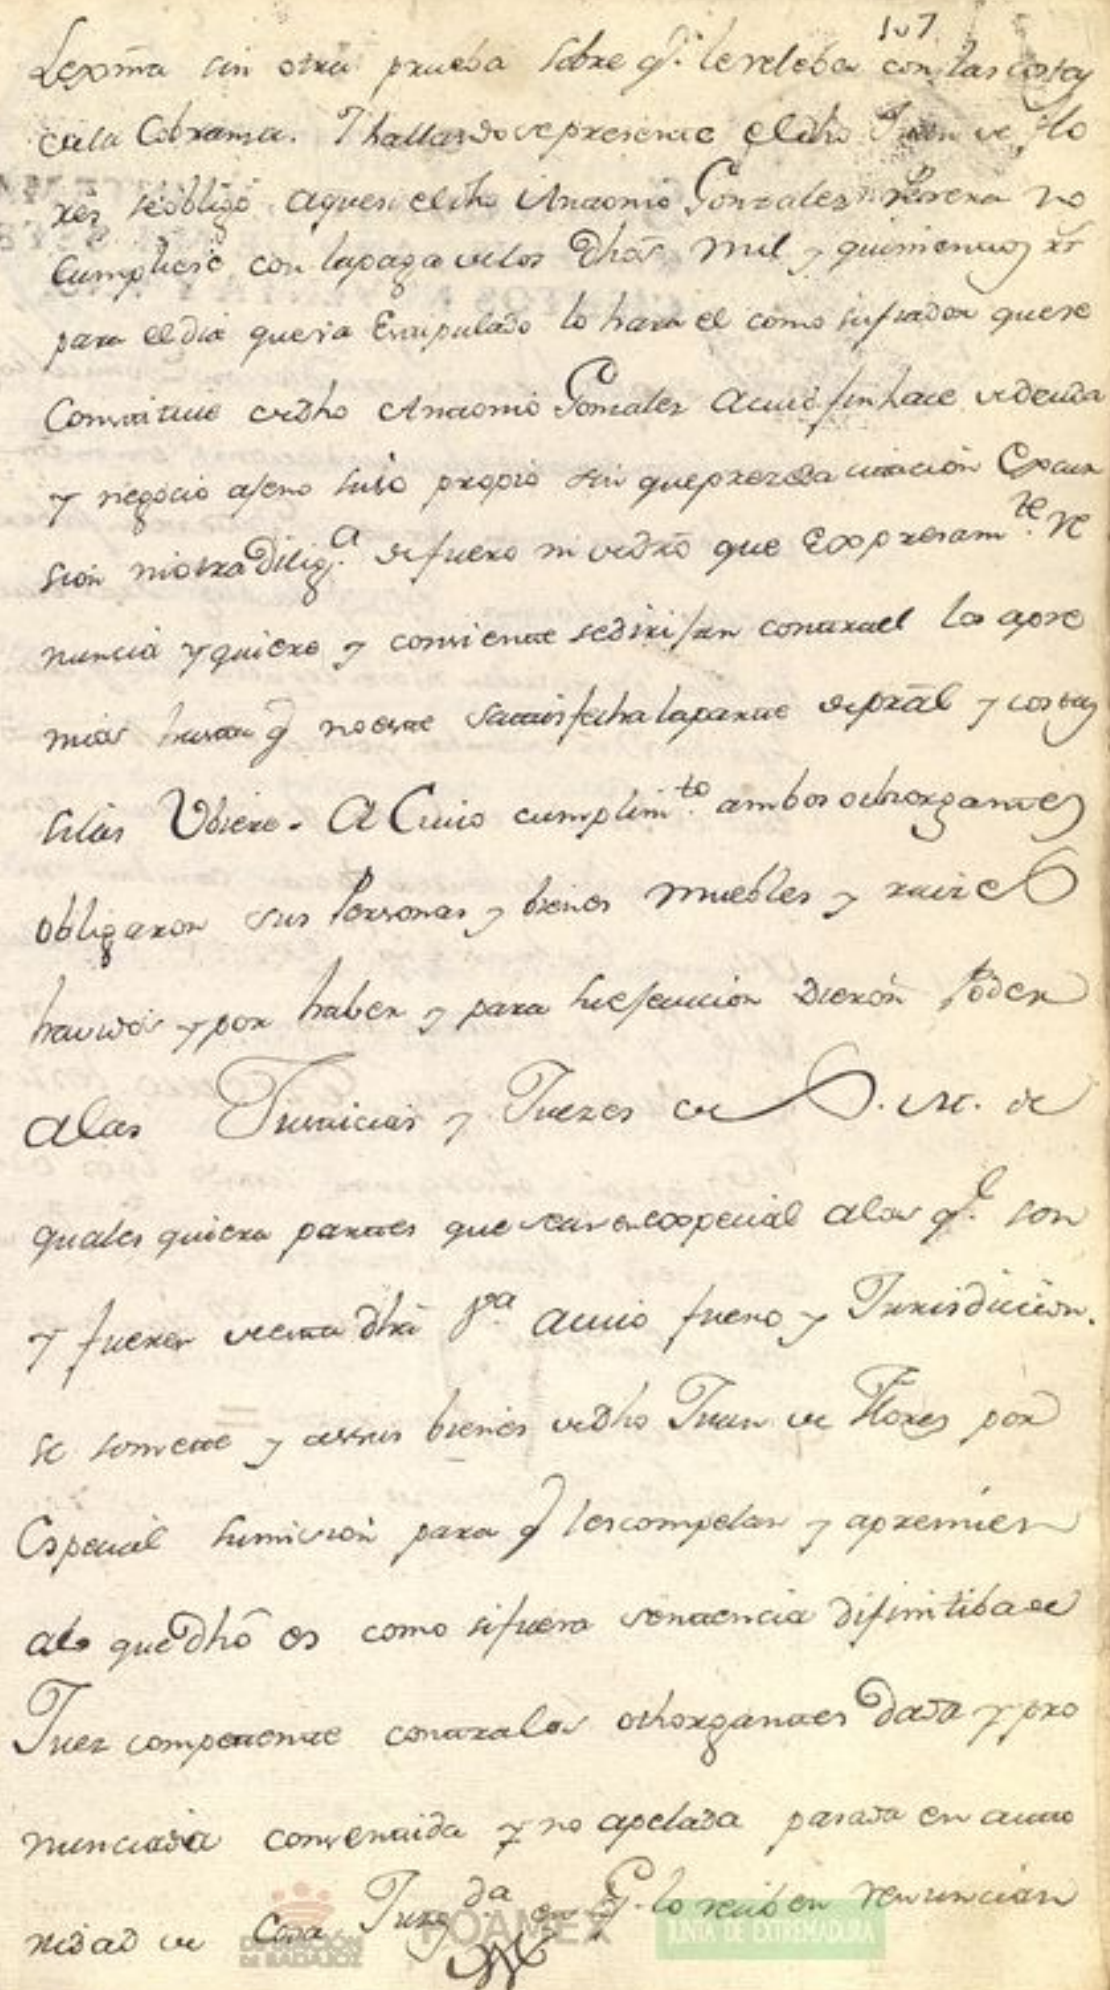 107
Lexma sin otra prueba sobre q.e le releba con las costas
de la Cobranza. Y hallandose presente el dho Juan de Flo
res se obligó aque si el dho Antonio Gonzalez no
Cumpliese con la paga de los dhos mil y quinientos rs
para el dia que ba Estipulado lo hara el como su fiador que se
Constituie de dho Antonio Gonzalez a cuio fin hace de deuda
y negocio ajeno suio propio sin que preceda citación Excur
sion ni otra Dilig.a de fuero ni de dro que Expresam.te re
nuncia y quiere y consiente se dirijan contra el los apre
mios hasta q no este satisfecha la parte de pral y costas
si las Ubiere. A Cuio cumplim.to ambos othorgantes
obligaron sus Personas y bienes muebles y raizes
havidos y por haber y para su ejecucion Dieron Poder
a las Justicias y Juezes de S. M. de
quales quiera partes que sean en especial a las q.e son
y fueren de esta dha V.a a cuio fuero y Jurisdicion.
se somete y a sus bienes de dho Juan de Flores por
Especial sumision para q les compelan y apremien
a lo que dho es como si fuera sentencia difinitiba de
Juez competente contra los othorgantes Dada y pro
nunciada consentida y no apelada pasada en auto
ridad de Cosa Juzg.da lo reciben renuncian
DIPUTACIÓN DE BADAJOZ
FOAMEX
JUNTA DE EXTREMADURA